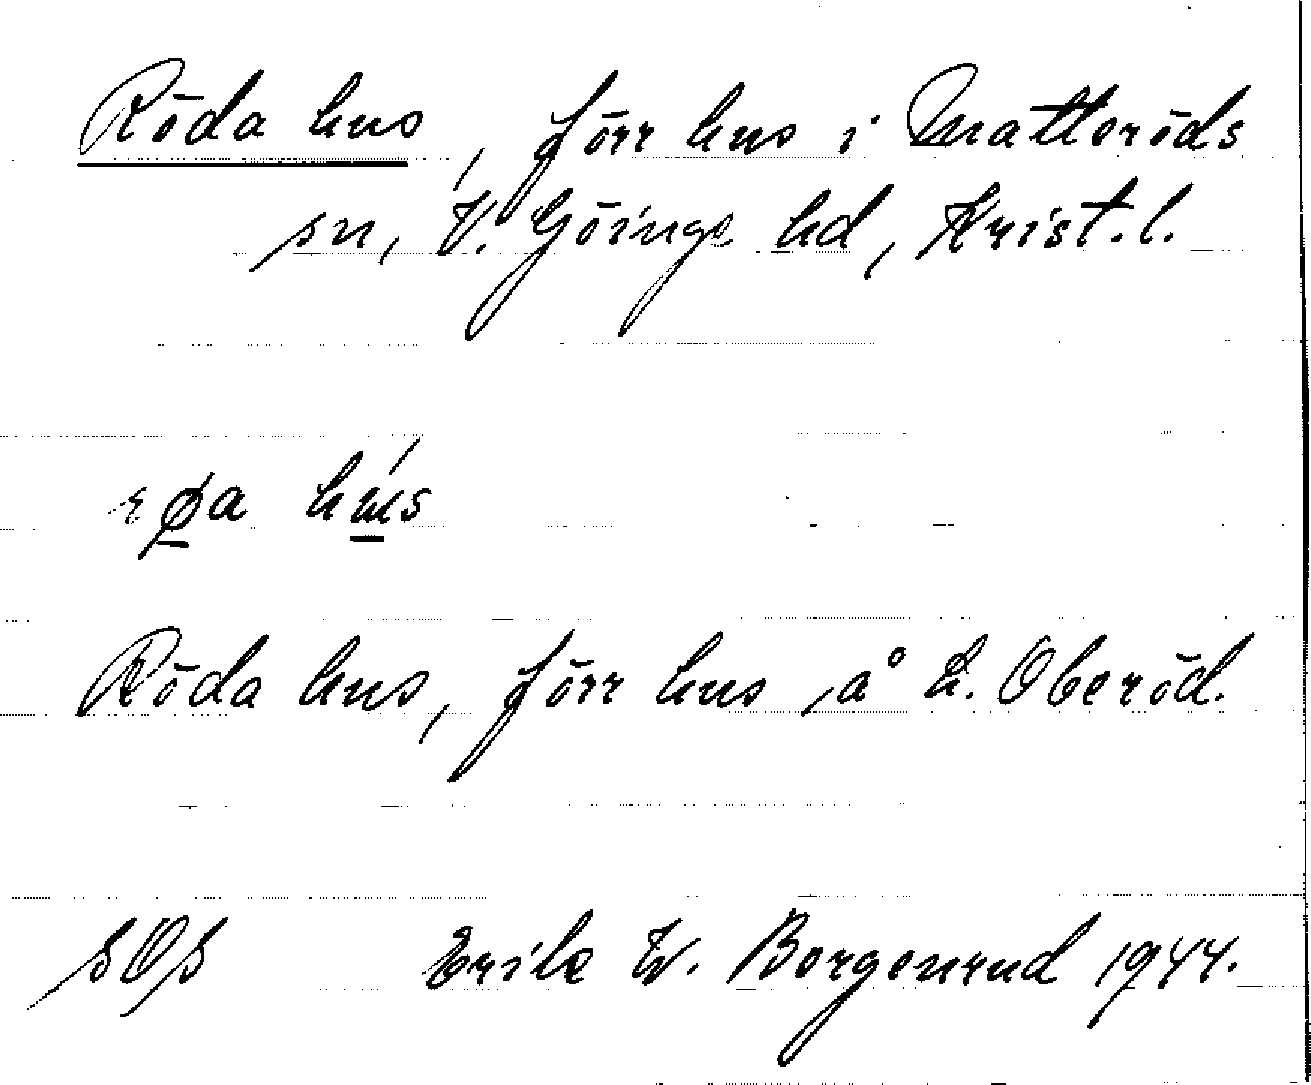 Röda hus, förr hus i Matteröds
sn, V. Göinge hd, Krist. l.
røa
Röda hus, förr hus å L. Oberöd.
SOS Erik W. Borgenrud 1944.